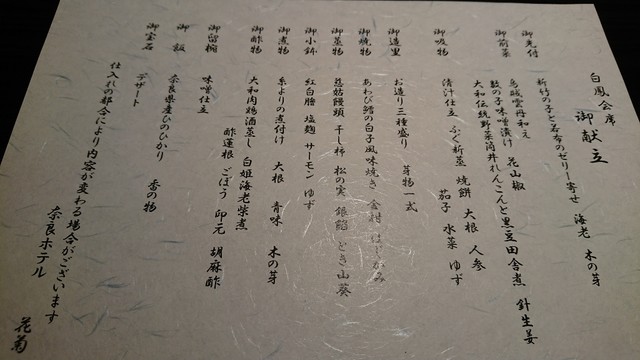 白鳳会席
御献立
御先付 新竹の子と若布のゼリー寄せ 海老 木の芽
御前菜 烏賊雲丹和え
数の子味噌漬け 花山椒
大和伝統野菜筒井れんこんと黒豆田舎煮 針生姜
御吸物 清汁仕立 ふく新蒸 焼餅 大根 人参
茄子 水菜 ゆず
御造里 お造り三種盛り 芽物一式
御焼物 あわび鱈の白子風味焼き 金柑 はじかみ
御蒸物 慈姑饅頭 干し柿 松の実 銀餡 とき山葵
御小鉢 紅白膾 塩麹 サーモン ゆず
御煮物 糸よりの煮付け 大根 青味 木の芽
御酢物 大和肉鶏酒蒸し 白姫海老柴煮
酢蓮根 ごぼう 印元 胡麻酢
御留椀 味噌仕立
御飯 奈良県産ひのひかり 香の物
御宝石 デザート
仕入れの都合により内容が変わる場合がございます
奈良ホテル
花菊